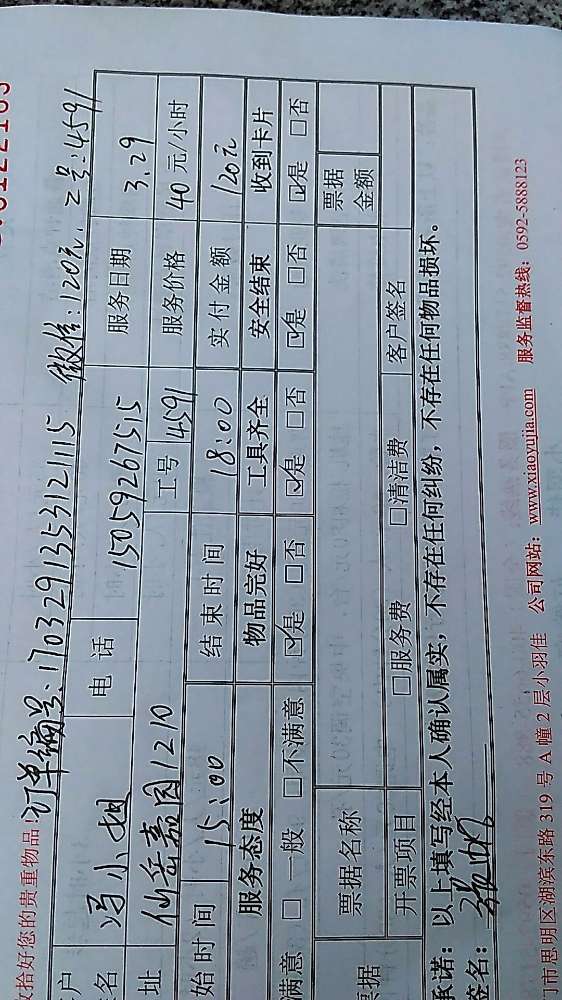 收拾好您的贵重物品!订单编号:170329135312115 微信:120元, 工号:4591
客户签名 冯小姐 电 话 15059267515 服务日期 3.29
地 址 仙岳嘉园1210 工号 4591 服务价格 40 元/小时
开始时间 15:00 结束时间 18:00 实付金额 120元
服务态度 物品完好 工具齐全 安全结束 收到卡片
满意 □ 一般 □不满意 ☑是 □否 ☑是 □否 ☑是 □否 ☑是 □否
票据 票据名称 票据金额
开票项目 □服务费 □清洁费 客户签名
承诺:以上填写经本人确认属实,不存在任何纠纷,不存在任何物品损坏。
签名:
门市思明区湖滨东路 319 号 A 幢 2 层小羽佳 公司网站:www.xiaoyujia.com 服务监督热线:0592-5888123